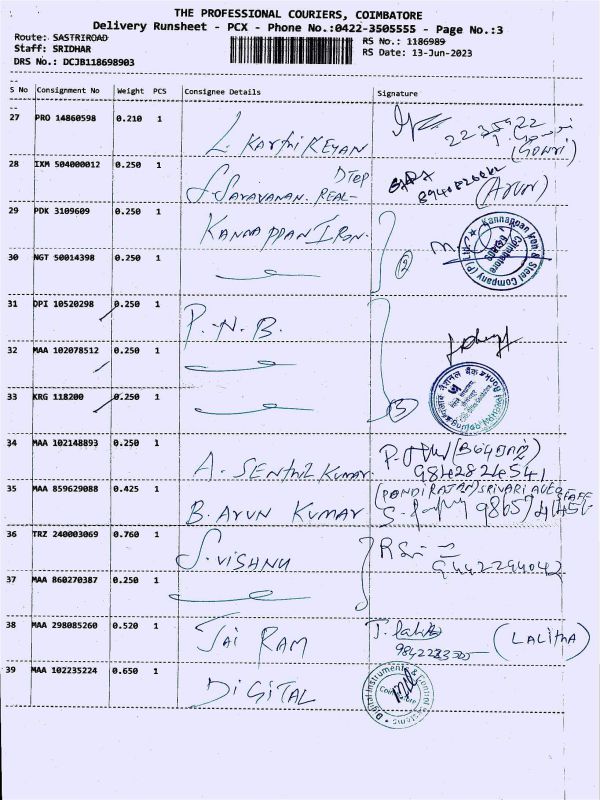 THE PROFESSIONAL COURIERS, COIMBATORE
Delivery Runsheet - PCX - Phone No.:0422-3505555 - Page No.:3
Route: SASTRIROAD
RS No.: 1186989
Staff: SRIDHAR
RS Date: 13-Jun-2023
DRS No.: DCJB118698903
S No Consignment No Weight PCS Consignee Details Signature
27 PRO 14860598 0.210 1 L. KARTHI KEYAN
(GOWRI.)
28 IXM 504000012 0.250 1 S. SARAVANAN. REAL- DTOP
(ARUN)
29 PDK 3109609 0.250 1 KANNAPPAN IRON.
Kannappan Iron & Steel Company (P) Ltd
Coimbatore
30 NGT 50014398 0.250 1
(2)
31 DPI 10520298 0.250 1 P.N.B.
32 MAA 102078512 0.250 1
33 KRG 118200 0.250 1
(3)
34 MAA 102148893 0.250 1 A. SENTHIL KUMAR.
9842824541
35 MAA 859629088 0.425 1 B. ARUN KUMAR
(PANDIRAJAN) SRIVARI
36 TRZ 240003069 0.760 1 S. VISHNU
9442294042
37 MAA 860270387 0.250 1
38 MAA 298085260 0.520 1 JAI RAM
(LALITHA)
39 MAA 102235224 0.650 1 DIGITAL
Digital Instruments & Control Systems